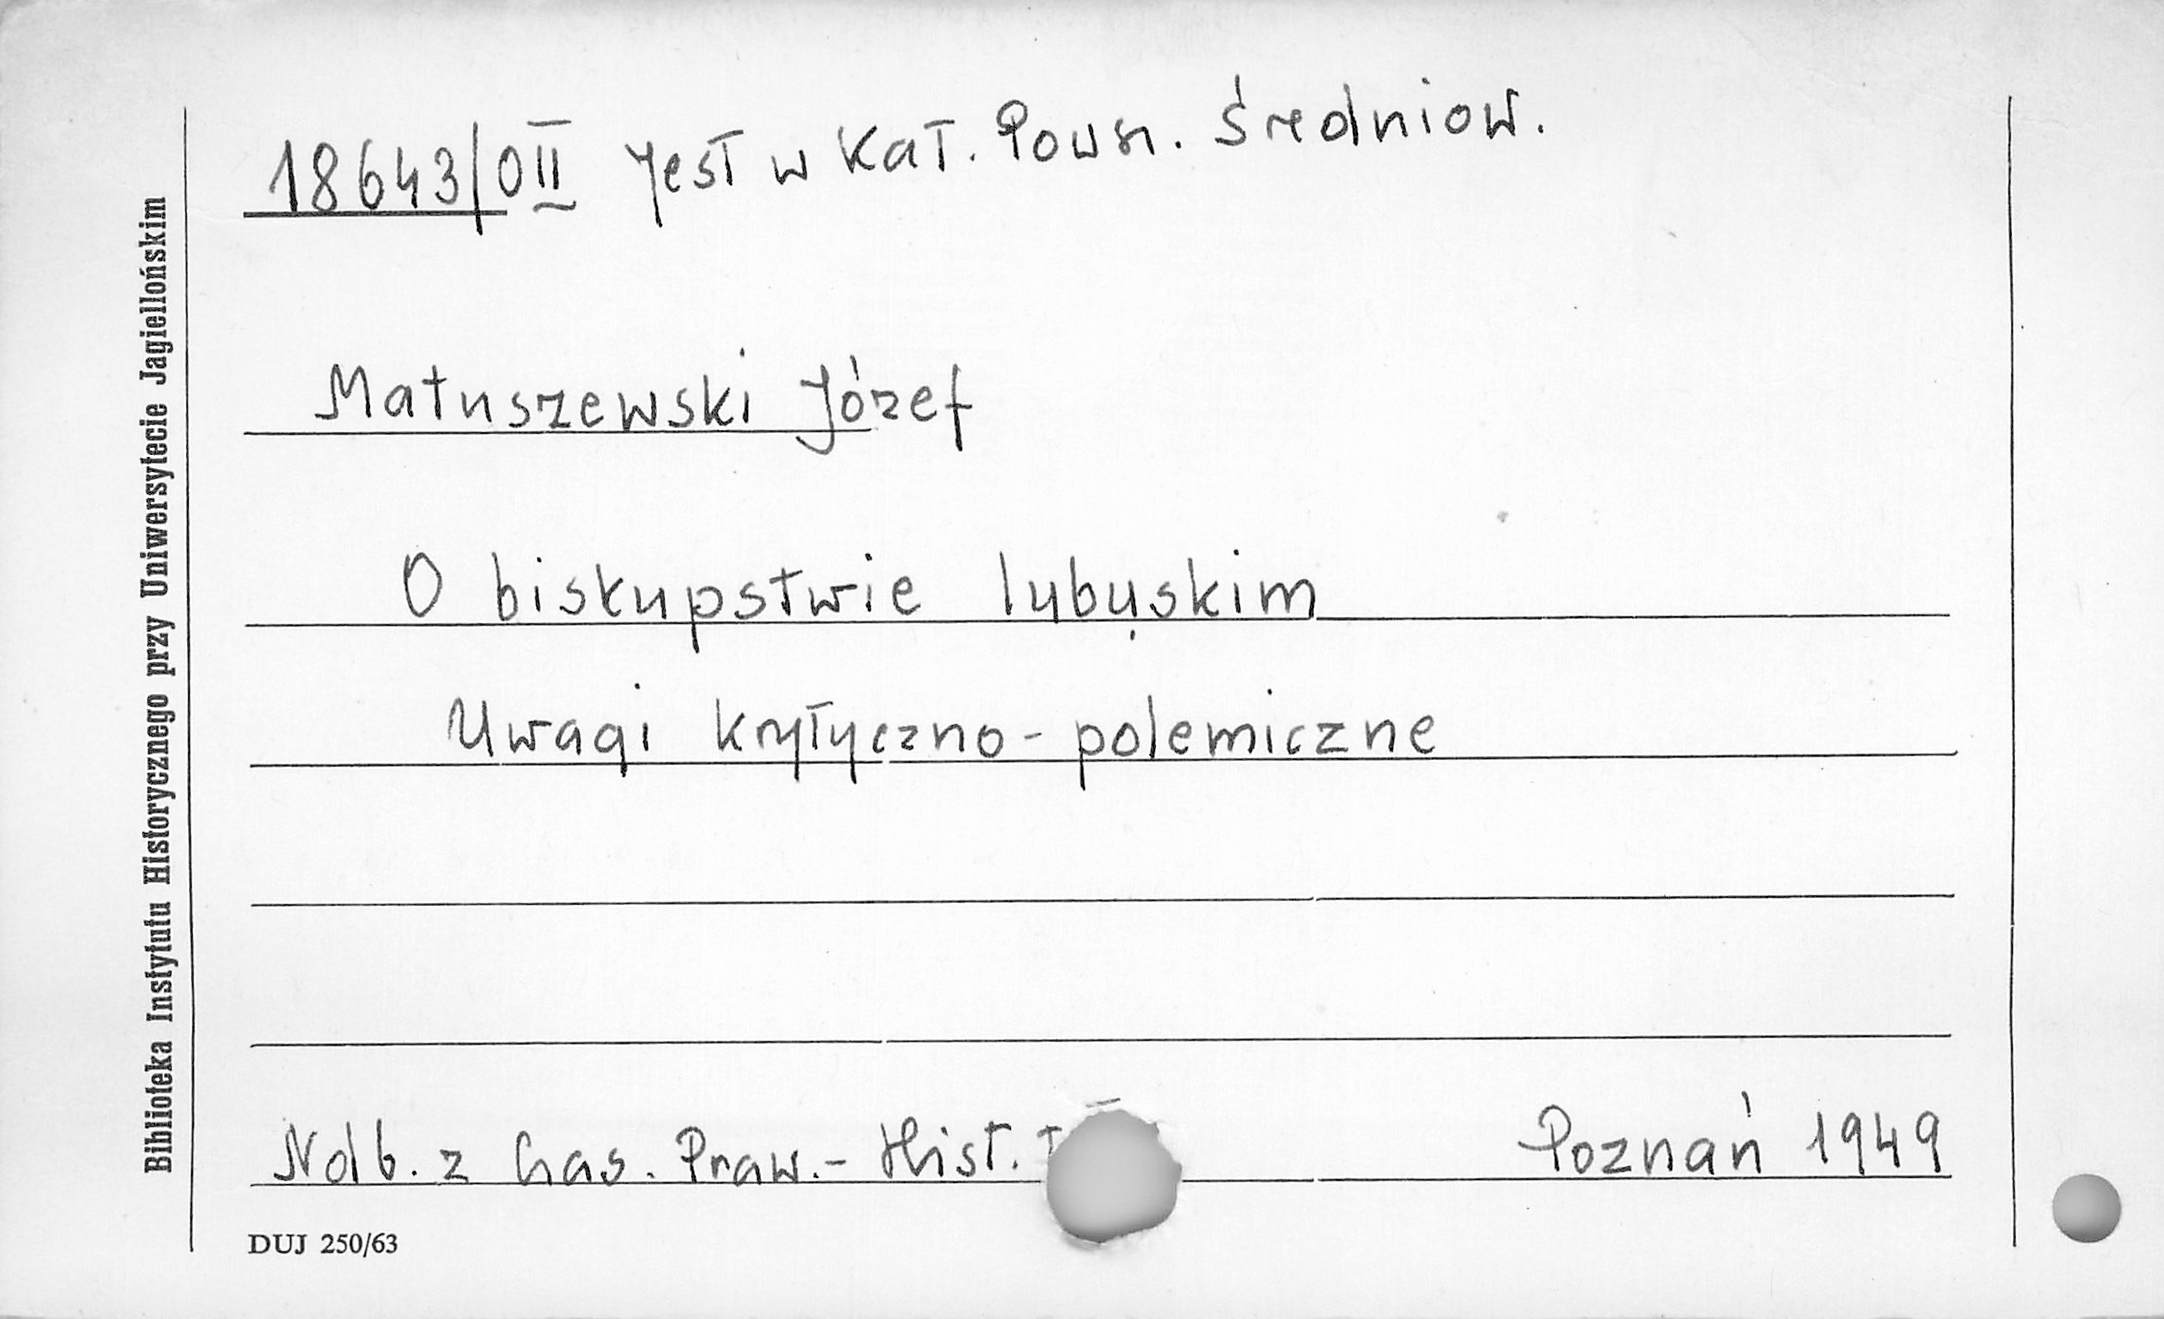 18643/0II Jest w Kat. Powsz. średniow.
Matuszewski Józef
O biskupstwie lubuskim
Uwagi krytyczno-polemiczne
Ndb. z Czas. Praw.-Hist.
Poznań 1949
DUJ 250/63
Biblioteka Instytutu Historycznego przy Uniwersytecie Jagiellońskim